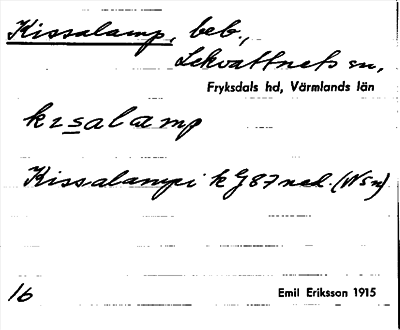 Kissalamp, beb.,
Lekvattnets sn,
Fryksdals hd, Värmlands län
kisalamp
Kissalampi k G 87 ned. (NSn)
16
Emil Eriksson 1915